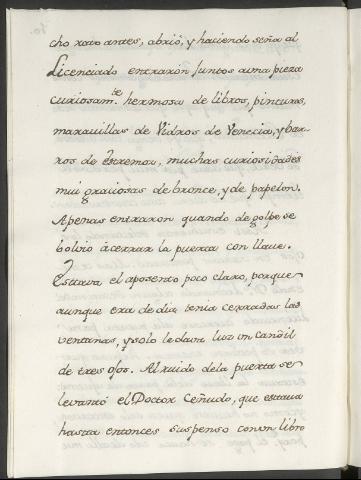 cho rato antes, abrió, y haciendo seña al
Licenciado entrarón juntos a una pieza
curiosam.te hermosa de libros, pinturas,
marauillas de Vidros de Venecia, y bar-
ros de Estremoz, muchas curiosidades
mui graciosas de bronce, y de papelon.
Apenas entraron quando de golpe se
bolvio à cerrar la puerta con llave.
Estava el aposento poco claro, porque
aunque era de dia tenia cerradas las
ventanas, y solo le dava luz un candil
de tres ojos. Al ruido dela puerta se
levantó el Doctor Ceñudo, que estava
hasta entonces suspenso con un libro